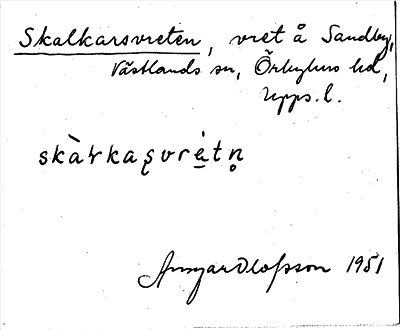 Skalkarsvreten, vret å Sandby,
Västlands sn, Örbyhus hd,
Upps. l.
skàɽkaʂvrè̠tn̥
Olofsson 1951